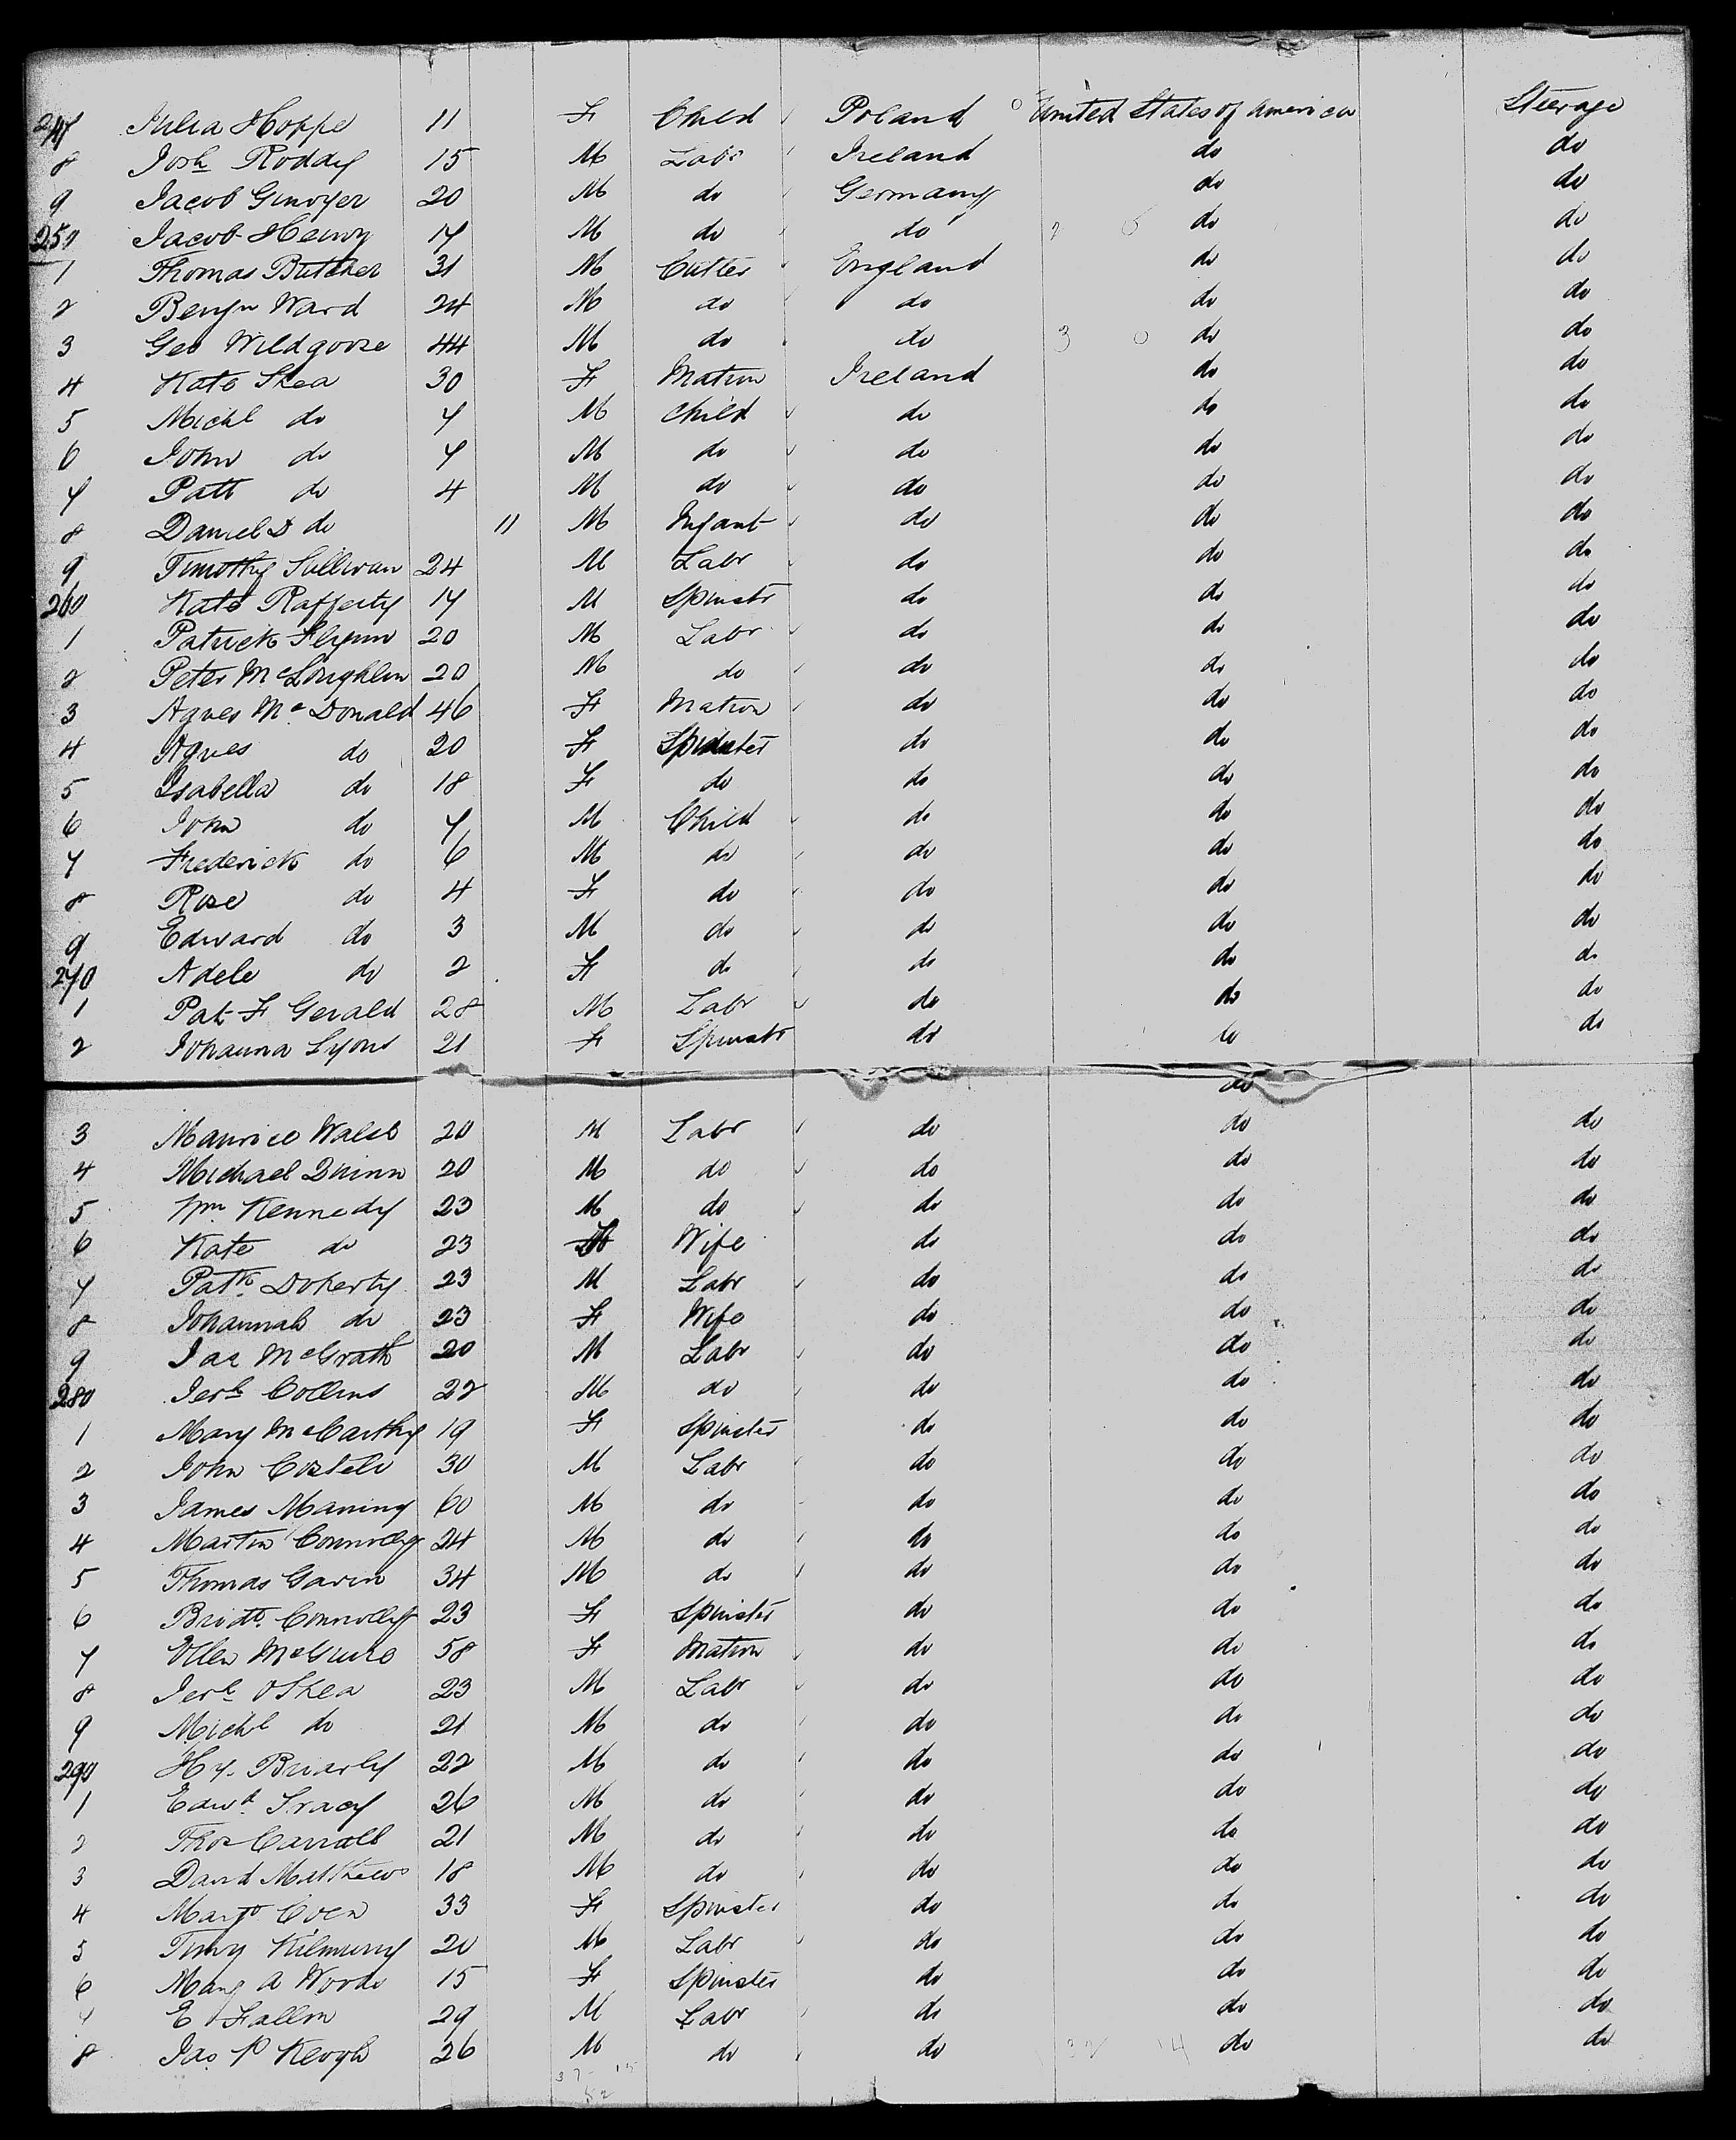 247 Julia Hoppe 11 F Child Poland United States of America Steerage
8 Josh Roddy 15 M Labr Ireland do do
9 Jacob 20 M do Germany do do
250 Jacob Henry 17 M do do do do
1 Thomas Butcher 31 M Cutler England do do
2 Benjn Ward 24 M do do do do
3 Geo Wildgoose 44 M do do 3 0 do do
4 Kate Shea 30 F Matron Ireland do do
5 Michl do 7 M Child do do do
6 John do 7 M do do do do
7 Patt do 4 M do do do do
8 Daniel D do 11 M Infant do do do
9 Timothy Sullivan 24 M Labr do do do
260 Kate Rafferty 17 M Spinstr do do do
1 Patrick Flynn 20 M Labr do do do
2 Peter McLoughlin 20 M do do do do
3 Agnes McDonald 46 F Matron do do do
4 Agnes do 20 F Spinster do do do
5 Isabella do 18 F do do do do
6 John do 7 M Child do do do
7 Frederick do 6 M do do do do
8 Rose do 4 F do do do do
9 Edward do 3 M do do do do
270 Adele do 2 F do do do do
1 Pat F Gerald 28 M Labr do do do
2 Johanna Lyons 21 F Spinstr do do do
do
3 Maurice Walsh 20 M Labr do do do
4 Michael Quinn 20 M do do do do
5 Wm Kennedy 23 M do do do do
6 Kate do 23 F Wife do do do
7 Patk Doherty 23 M Labr do do do
8 Johannah do 23 F Wife do do do
9 Jas McGrath 20 M Labr do do do
280 Jerh Collins 22 M do do do do
1 Mary McCarthy 19 F Spinster do do do
2 John Costelo 30 M Labr do do do
3 James Maning 60 M do do do do
4 Martin Connolly 24 M do do do do
5 Thomas Gavin 34 M do do do do
6 Bridt Connolly 23 F Spinster do do do
7 Ellen McGuire 58 F Matron do do do
8 Jerh OShea 23 M Labr do do do
9 Michl do 21 M do do do do
290 Hy. Briarly 22 M do do do do
1 Edwd Tracy 26 M do do do do
2 Thos Carroll 21 M do do do do
3 David Matthews 18 M do do do do
4 Margt Coen 33 F Spinster do do do
5 Timy Kilmurry 20 M Labr do do do
6 Mary A Woods 15 F Spinster do do do
7 E Fallon 29 M Labr do do do
8 Jas P Keogh 26 M do do 32 14 do do
37 15
52